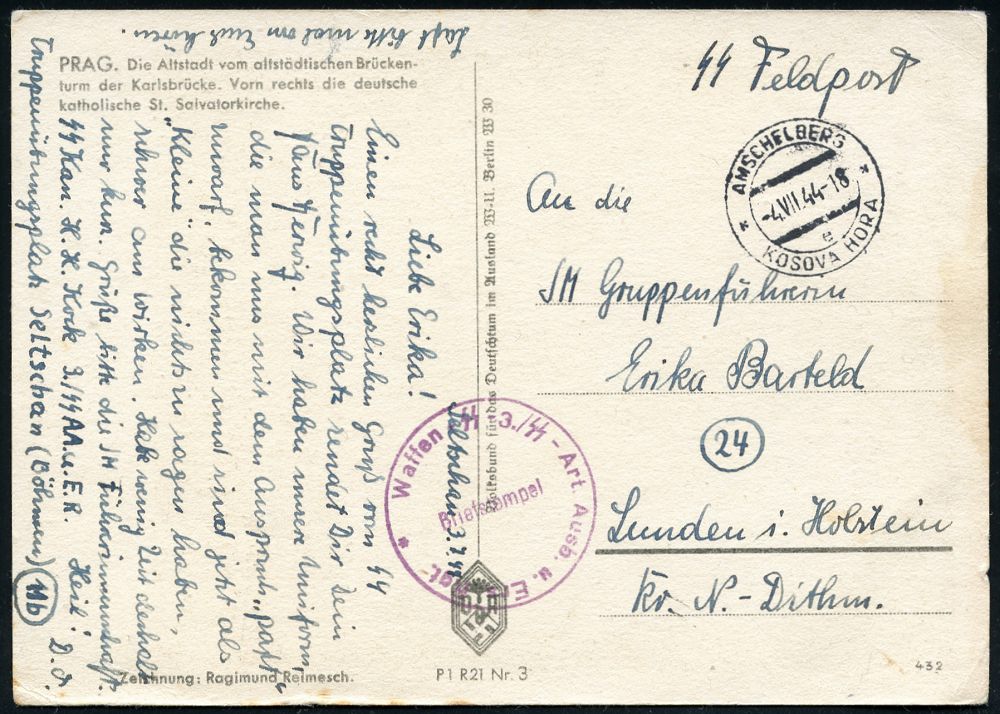 Laßt bitte mal von Euch hören.
PRAG. Die Altstadt vom altstädtischen Brücken-
turm der Karlsbrücke. Vorn rechts die deutsche
katholische St. Salvatorkirche.
Seltschan, 3.7.44
Liebe Erika!
Einen recht herzlichen Gruß vom SS
Truppenübungsplatz sendet Dir Dein
Wir haben unsere Uniform,
die man uns mit dem Ausspruch „paßt"
zuwarf, bekommen und sind jetzt als
„Kleine" die nichts zu sagen haben,
Habe wenig Zeit deshalb
nur kurz. Grüße bitte die JM Führerinnenschaft.
SS Kan. H. H. Kock 3./SS A.A.u.E.R. Heil! D.O.
Truppenübungsplatz Seltschan (Böhmen) 11b
Zeichnung: Ragimund Reimesch.
Volksbund für das Deutschtum im Ausland W-U. Berlin W 30
P1 R21 Nr. 3
Waffen SS * 3./SS-Art. Ausb. u. E.
Briefstempel
SS Feldpost
AMSCHELBERG
-4.VII.44-18
e
KOSOVA HORA
An die
JM Gruppenführerin
Erika Barteld
24
Lunden i. Holstein
Kr. N.-Dithm.
432